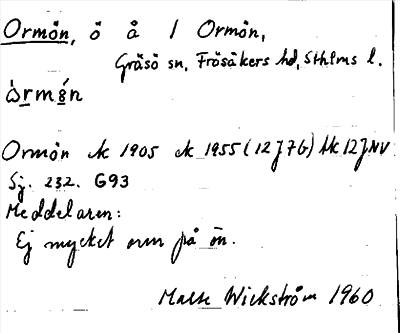 Ormön, ö å / Ormön,
Gräsö sn, Frösåkers hd, Sthlms l.
ὼrmǵn
Ormön Ak 1905 Ak 1955 (12J7G) Ak 12J NV
Sj. 232. G93
Meddelaren:
Ej mycket orm på ön.
Malte Wickström 1960